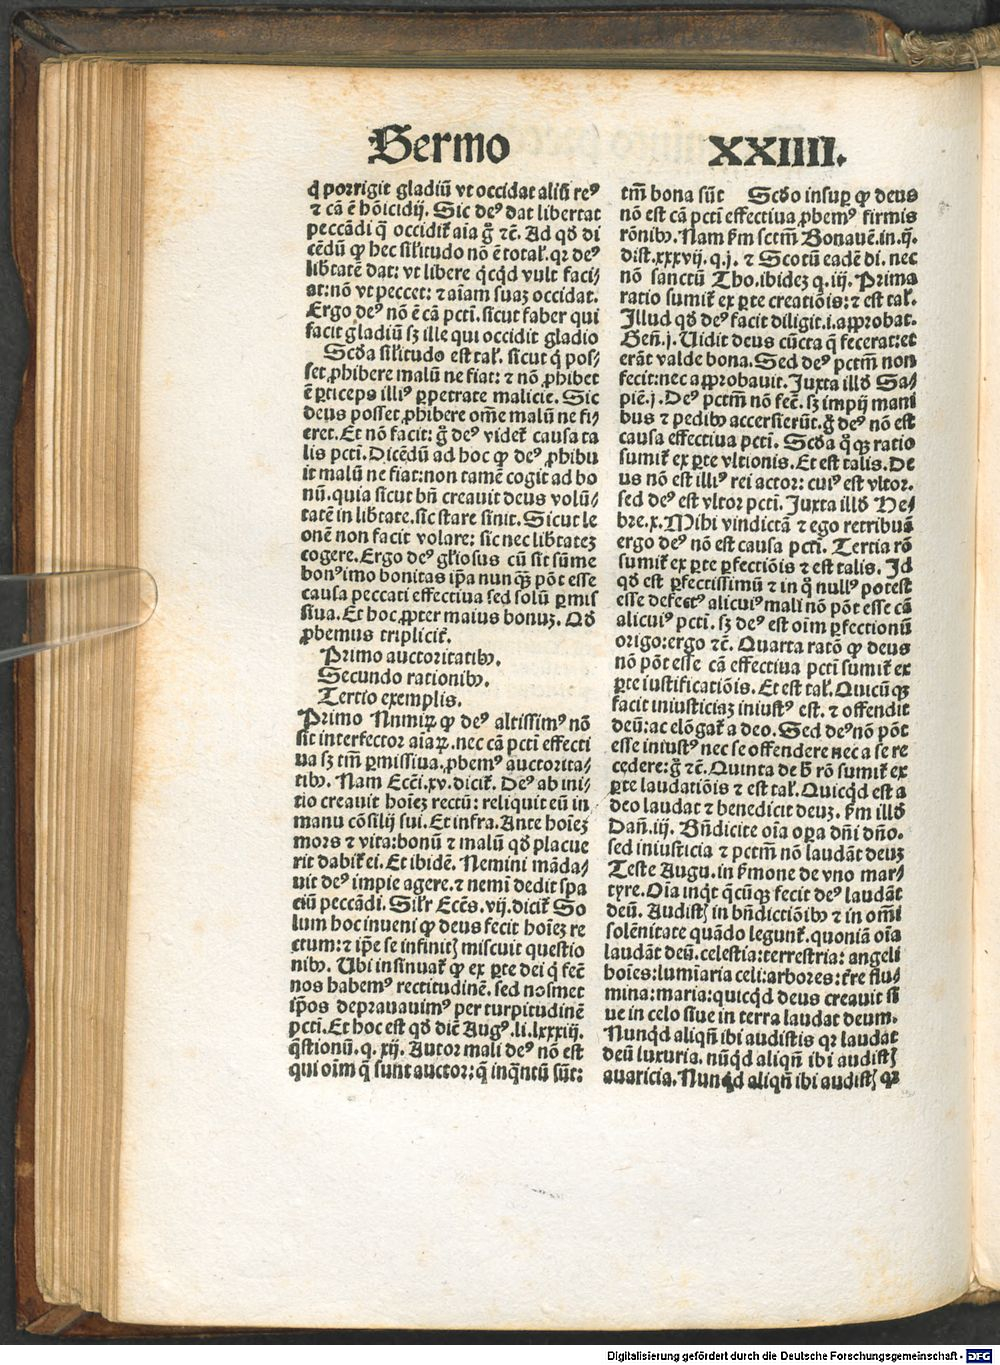 Sermo XXIIII.
q̇ porrigit gladiū vt occidat aliū reꝰ
⁊ cā ē hōicidij. Sic deꝰ dat libertat
peccādi q̄ occidit aīa g̊ ⁊c̄. Ad qḋ di
cēdū ꝙ hec silitudo nō ē total. qꝛ deꝰ
libtatē dat: vt libere qcqd vult faci⸗
at: nō vt peccet: ⁊ aīam suaꝫ occidat.
Ergo deꝰ nō ē cā pcti. sicut faber qui
facit gladiū sꝫ ille qui occidit gladio
Scḋa silitudo est tal. sicut q̇ pos⸗
set ꝓhibere malū ne fiat: ⁊ nō ꝓhibet
ē ꝑticeps illiꝰ ꝑpetrate malicie. Sic
deus posset ꝓhibere om̄e malū ne fi
eret. Et nō facit: g̊ deꝰ videt causa ta
lis pcti. Dicēdū ad hoc ꝙ deꝰ ꝓhibu
it malū ne fiat: non tamē cogit ad bo
nū. quia sicut bn̄ creauit deus volū⸗
tatē in libtate. sic stare sinit. Sicut le
onē non facit volare: sic nec libtateꝫ
cogere. Ergo deꝰ gl̄iosus cū sit sūme
bonꝰ imo bonitas ip̄a nunqꝫ pōt esse
causa peccati effectiua sed solū ꝑmis
siua. Et hoc ꝓpter maius bonuꝫ. Qḋ
ꝓbemus triplicit.
Primo auctoritatibꝰ.
Secundo rationibꝰ.
Tertio exemplis.
Primo Nnmiꝝ ꝙ deꝰ altissimꝰ nō
sit interfector aīaꝝ. nec cā pcti effecti
ua sꝫ tm̄ ꝑmissiua. ꝓbemꝰ auctorita⸗
tibꝰ. Nam Ecc̄i. xv. dicit. Deꝰ ab ini⸗
tio creauit hoīeꝫ rectū: reliquit eū in
manu cōsilij sui. Et infra. Ante hoīeꝫ
mors ⁊ vita: bonū ⁊ malū qḋ placue
rit dabit ei. Et ibidē. Nemini māda⸗
uit deꝰ impie agere. ⁊ nemī dedit spa
ciū peccādi. Silr Ecc̄s. vij. dicit So
lum hoc inueni ꝙ deus fecit hoīeꝫ re
ctum: ⁊ ip̄e se infinitꝭ miscuit questio
nibꝰ. Ubi insinuat ꝙ ex ꝑte dei q̇ fec̄
nos habemꝰ rectitudinē. sed nosmet
ip̄os deprauauimꝰ per turpitudinē
pcti. Et hoc est qḋ dic̄ Augꝰ. li. lxxxiij.
q̄stionū. q. xij. Autor mali deꝰ nō est
qui oīm q̄ sunt auctor: q̄ inq̄ntū sūt:
tm̄ bona sūt Scḋo insuꝑ ꝙ deus
nō est cā pcti effectiua ꝓbemꝰ firmis
rōnibꝰ. Nam ẜm sctm̄ Bonauē. in. ij.
dist. xxxvij. q. j. ⁊ Scotū eadē di. nec
nō sanctū Tho. ibideꝫ q. iij. Prima
ratio sumit ex ꝑte creatiōis: ⁊ est tal.
Illud qḋ deꝰ facit diligit. i. approbat.
Geñ. j. Uidit deus cūcta q̄ fecerat: et
erāt valde bona. Sed deꝰ pctm̄ non
fecit: nec approbauit. Juxta illḋ Sa⸗
piē. j. Deꝰ pctm̄ nō fec̄. sꝫ impij mani
bus ⁊ pedibꝰ accersierūt. g̊ deꝰ nō est
causa effectiua pcti. Scḋa q̊ꝫ ratio
sumit ex ꝑte vltionis. Et est talis. De
us nō est illiꝰ rei actor: cuiꝰ est vltor.
sed deꝰ est vltor pcti. Juxta illḋ He⸗
bre. x. Mihi vindictā ⁊ ego retribuā
ergo deꝰ nō est causa pcti. Tertia rō
sumit ex ꝑte ꝑfectiōis ⁊ est talis. Id
qḋ est ꝑfectissimū ⁊ in q̊ nullꝰ potest
esse defectꝰ alicuiꝰ mali nō pōt esse cā
alicuiꝰ pcti. sꝫ deꝰ est oīm ꝑfectionū
origo: ergo ⁊c̄. Quarta ratō ꝙ deus
nō pōt esse cā effectiua pcti sumit ex
ꝑte iustificatiōis. Et est tal. Quicūqꝫ
facit iniusticiaꝫ iniustꝰ est. ⁊ offendit
deū: ac elōgat a deo. Sed deꝰ nō pōt
esse iniustꝰ nec se offendere nec a se re
cedere: g̊ ⁊c̄. Quinta de h̄ rō sumit ex
ꝑte laudatiōis ⁊ est tal. Quicqd est a
deo laudat ⁊ benedicit deuꝫ. ẜm illḋ
Dañ. iij. Bn̄dicite oīa oꝑa dn̄i dn̄o.
sed iniusticia ⁊ pctm̄ nō laudāt deuꝫ
Teste Augu. in ẜmone de vno mar⸗
tyre. Oīa inqt q̄cūqꝫ fecit deꝰ laudāt
deū. Audistꝭ in bn̄dictiōibꝰ ⁊ in om̄i
solēnitate quādo legunt. quoniā oīa
laudāt deū. celestia: terrestria: angeli
hoīes: lumīaria celi: arbores: t̄re flu⸗
mina: maria: quicqd deus creauit si
ue in celo siue in terra laudat deum.
Nunqd aliqn̄ ibi audistis qꝛ laudat
deū luxuria. nūqd aliqn̄ ibi audistꝭ
auaricia. Nunqd aliqn̄ ibi audistꝭ qꝛ
Digitalisierung gefördert durch die Deutsche Forschungsgemeinschaft - DFG